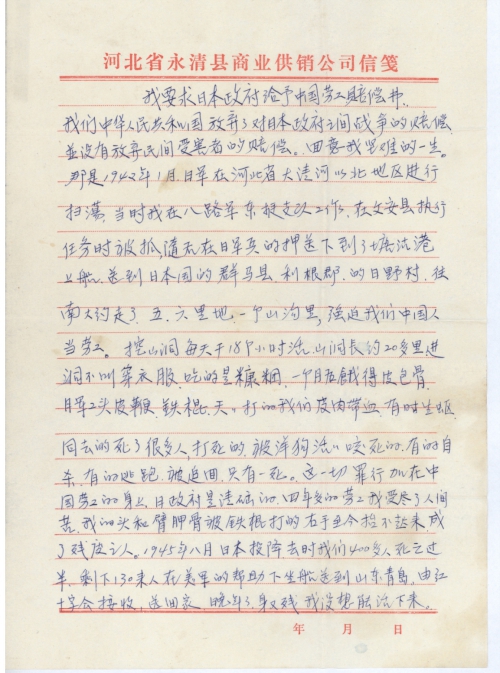 河北省永清县商业供销公司信笺
我要求日本政府给予中国劳工赔偿书
我们中华人民共和国放弃了对日本政府之间战争的赔偿
並没有放弃民间受害者的赔偿。回忆我坚难的一生。
那是1942年1月日军在河北省大清河以北地区进行
扫荡,当时我在八路军东挺支队工作,在文安县执行
任务时被抓,随后在日军兵的押送下到了塘沽港
上船,送到日本国的群马县,利根郡,的日野村,往
南大约走了五、六里地,一个山沟里,强迫我们中国人
当劳工。挖山洞每天干18个小时活,山洞长约20多里进
洞不叫穿衣服,吃的是糠粥,一个月后饿得皮包骨
日军工头皮鞭,铁棍,天天打的我们皮肉带血,有时生蛆
同去的死了很多人,打死的,被洋狗活活咬死的,有的自
杀,有的逃跑,被追回,只有一死。这一切罪行加在中
国劳工的身上,日政府是清础的,四年多的劳工我受尽了人间
苦,我的头和臂胛骨被铁棍打的右手至今抬不起来,成
了残废之人。1945年八月日本投降,去时我们400多人死亡过
半,剩下130来人在美军的帮助下坐船送到山东青岛,由红
十字会接收,送回家,晚年了,身又残,我没想能活下来。
年 月 日